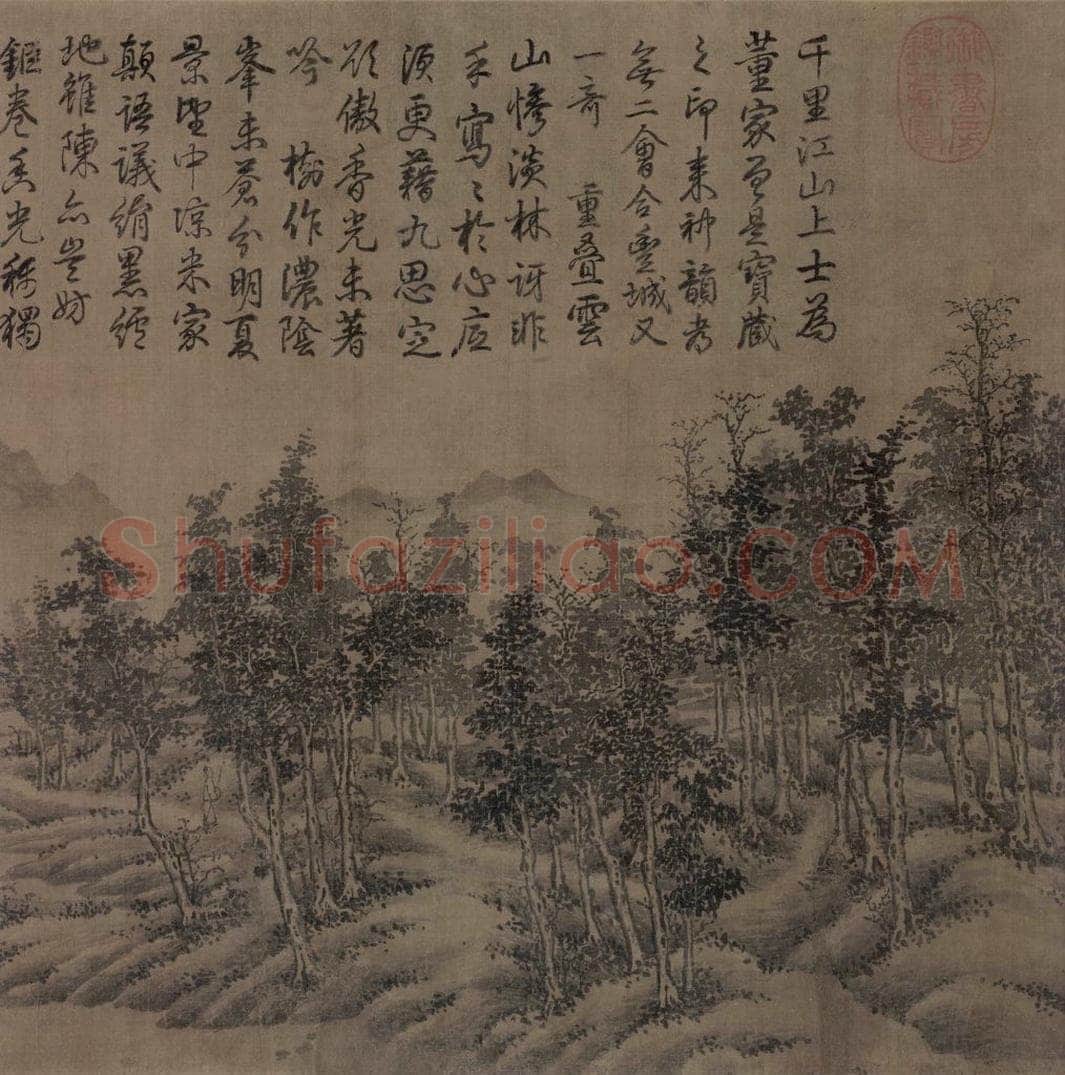 千里江山上士為
董家曾是寶藏
之印來神韻考
無二會合豐城又
一奇 重疊雲
山慘淡林訝非
手寫〻於心應
須更藉九思定
傲香光未著
吟 樹作濃陰
峯未蒼分明夏
景望中涼米家
顛語議絹黑經
地雖陳亦豈妨
鉅卷香光稱獨
御書房鑒藏寶
Shufaziliao.COM